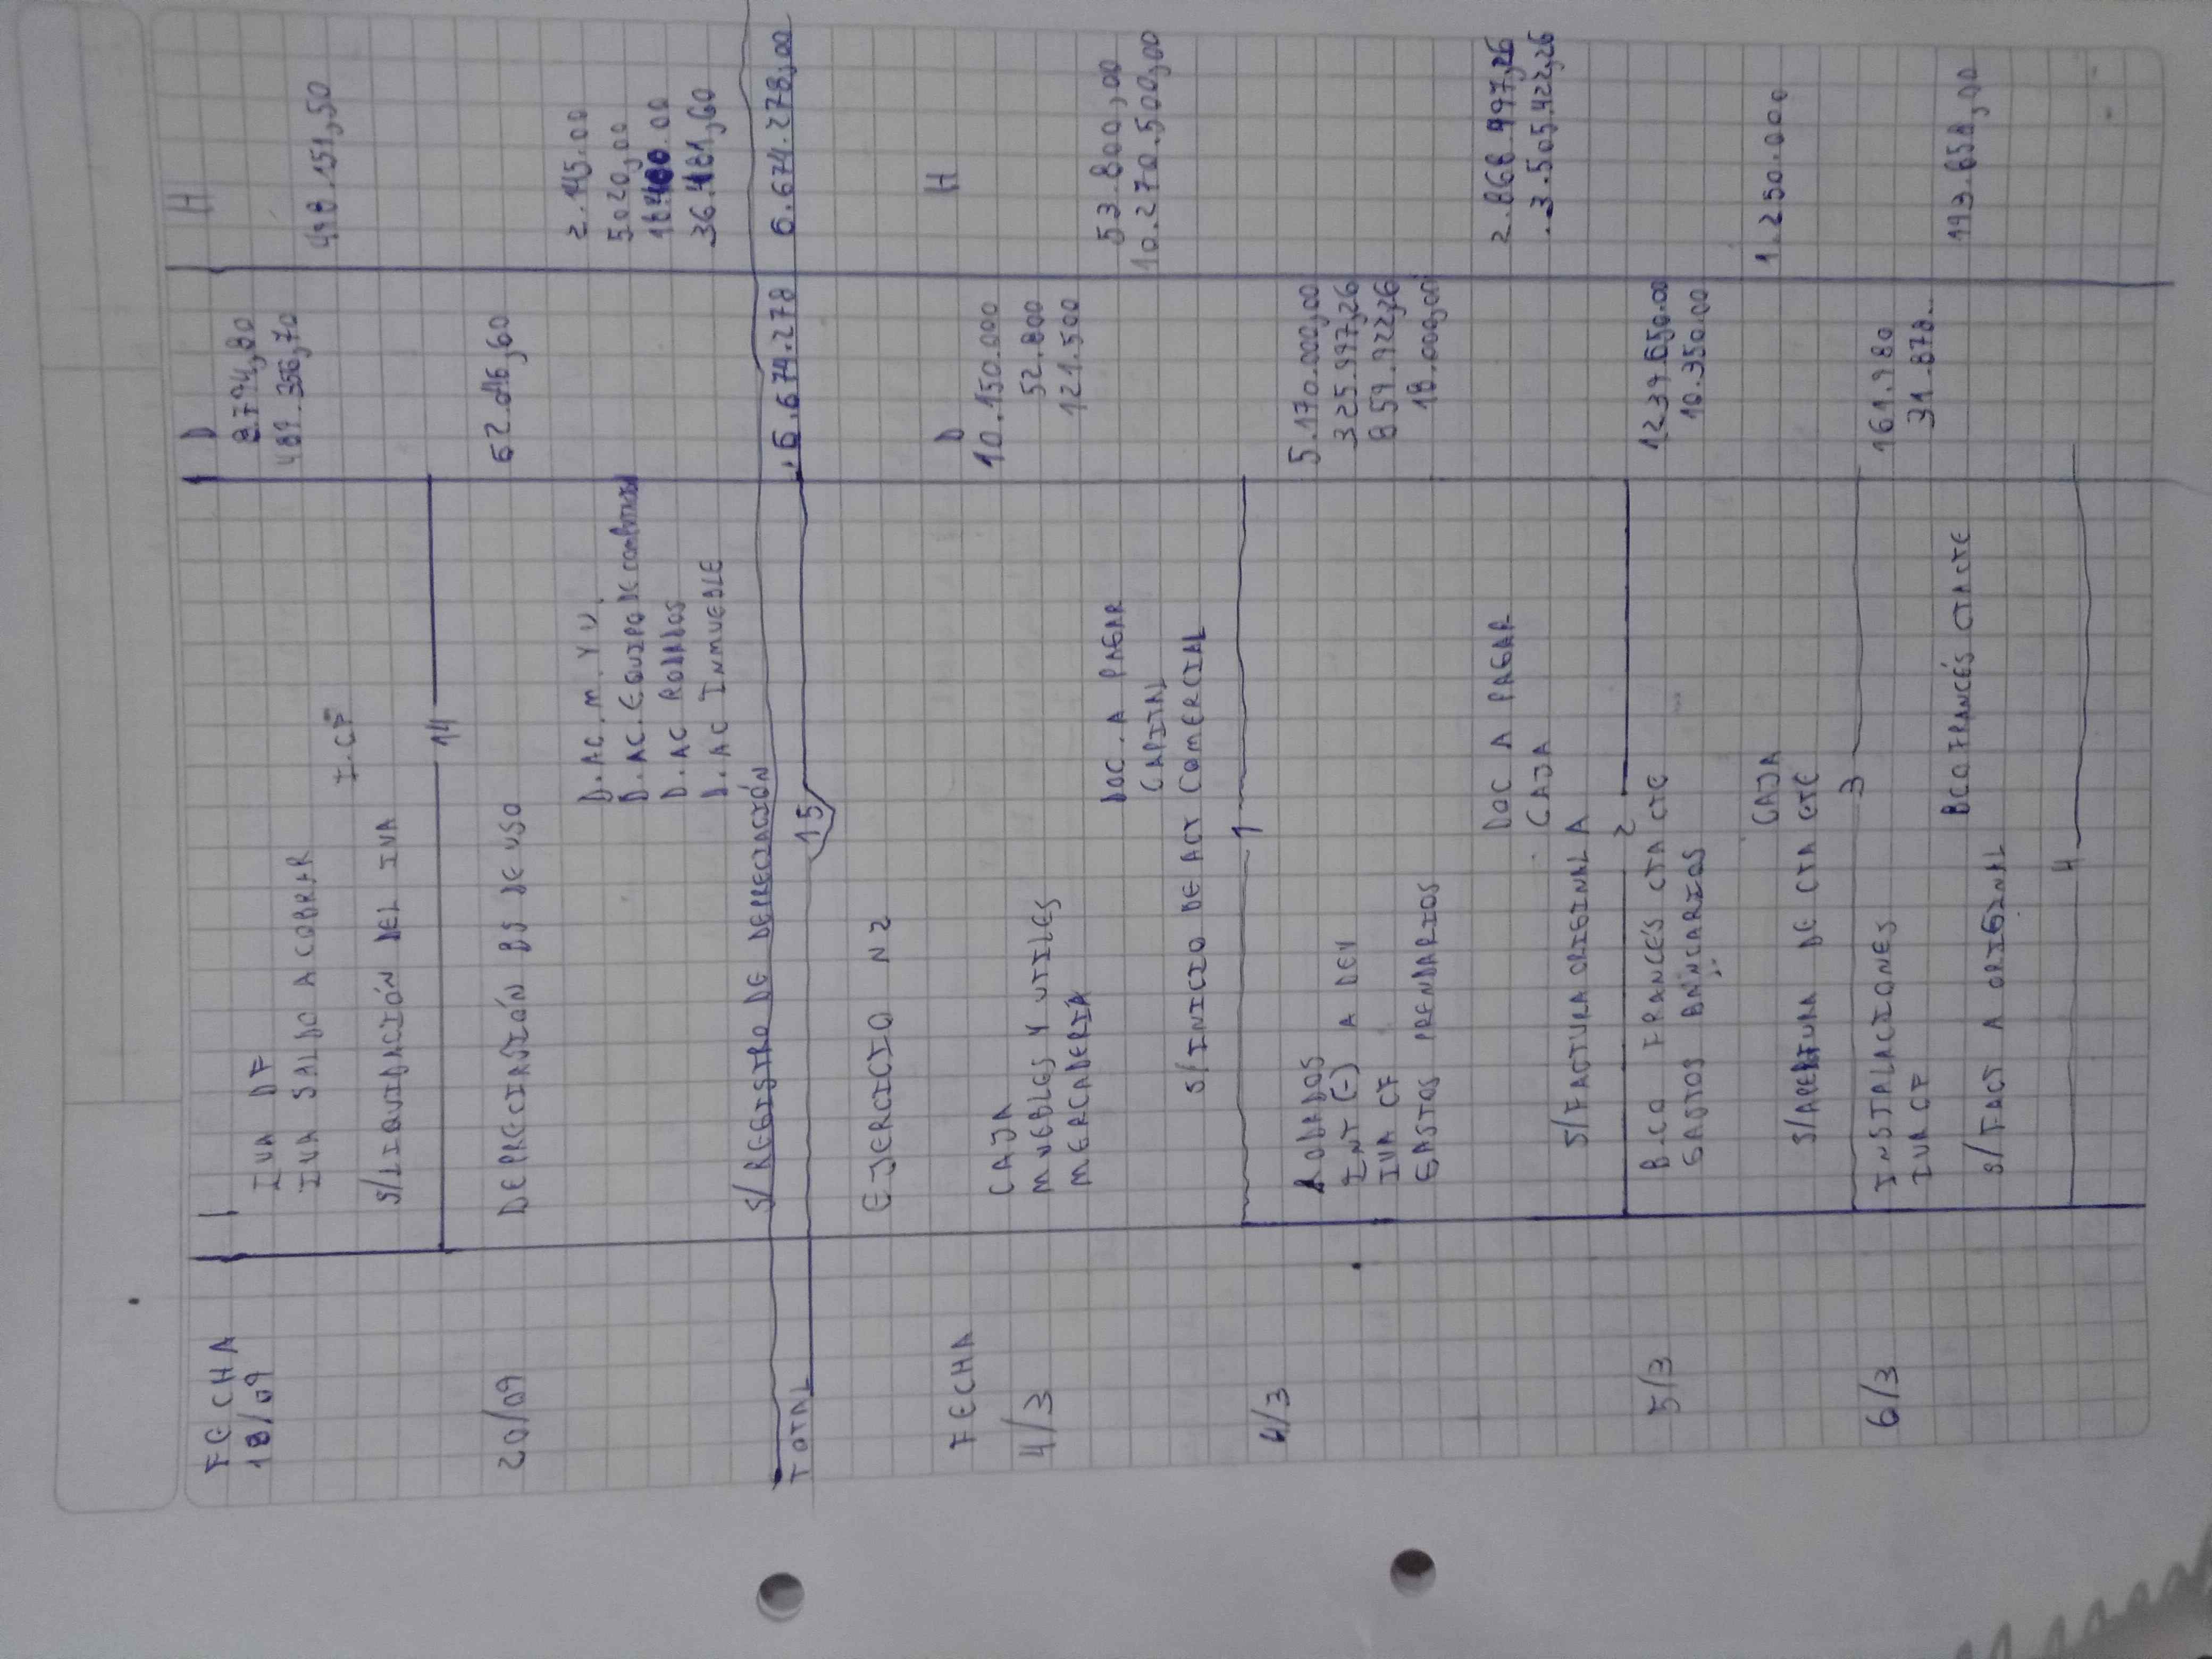 FECHA D H
18/09 IVA DF 8.794,80
IVA SALDO A COBRAR 489.356,70
I.CF 498.151,50
S/LIQUIDACIÓN DEL IVA
14
20/09 DEPRECIASIÓN BS DE USO 62.046,60
D.AC.M.Y U. 2.145.00
D.AC.EQUIPO DE 5.020,00
D.AC RODADOS 18.400.00
D.AC INMUEBLE 36.481,60
S/REGISTRO DE DEPRECIACIÓN
TOTAL 6.674.278 6.674.278,00
15
EJERCICIO N2
FECHA D H
4/3 CAJA 10.150.000
MUEBLES Y UTILES 52.800
MERCADERIA 121.500
DOC. A PAGAR 53.800,00
CAPITAL 10.270.500,00
S/INICIO DE ACT COMERCIAL
1
4/3 RODADOS 5.170.000,00
INT (-) A DEV 325.997,26
IVA CF 859.922,26
GASTOS PRENDARIOS 18.000,00
DOC A PAGAR 2.868.997,26
CAJA 3.505.422,26
S/FACTURA ORIGINAL A
2
5/3 B.CO FRANCÉS CTA CTE 1239.650.00
GASTOS BANCARIOS 10.350.00
CAJA 1.250.000,
S/APERTURA DE CTA CTE
3
6/3 INSTALACIONES 161.980
IVA CF 31.878..
BCO FRANCÉS CTA CTE 193.858,00
S/FACT A ORIGINAL
4